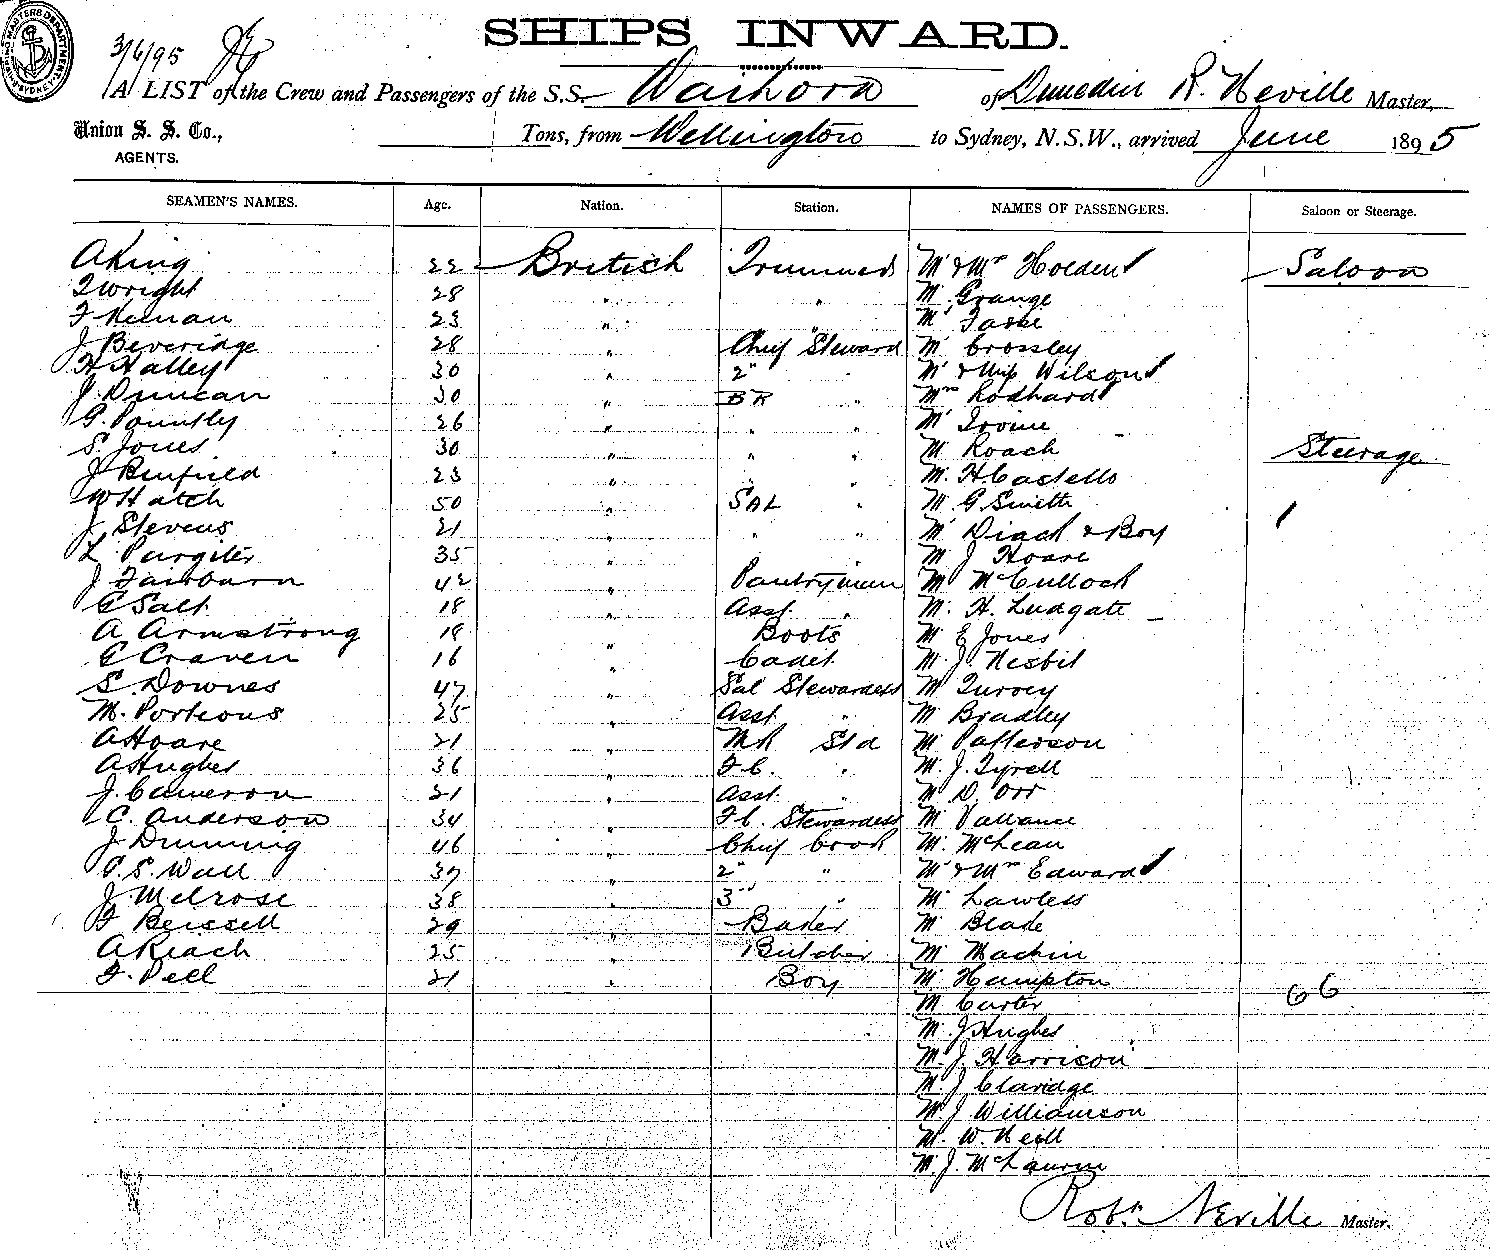 SHIPS INWARD.
3/6/95
A LIST of the Crew and Passengers of the S.S. Waihora of Dunedin R. Neville Master,
Union S. S. Co., Tons, from Wellington to Sydney, N.S.W., arrived June 1895
AGENTS.
SEAMEN'S NAMES. Age. Nation. Station. NAMES OF PASSENGERS. Saloon or Steerage.
A King 22 British Trimmers Mr & Mrs Holden Saloon
T Wright 28 " " Mr Grange
F Keenan 23 " " Mr
J Beveridge 28 " Chief Steward Mr Crossley
H Halley 30 " 2" " Mr & Miss Wilson
J. Duncan 30 " BR " Mrs Rodhard
G. Pountly 26 " " " Mr Irvine
S. Jones 30 " " " Mr Roach Steerage
J Benfield 23 " " " Mr. H Castello
W Hatch 50 " SAL " Mr G Smith
J. Stevens 21 " " " Mr Diack & Boy
L. Purgiter 35 " Mr J Hoare
J Fairburn 42 " Pantryman Mr McCullock
G Salt 18 " Asst " Mr. H. Ludgate
A Armstrong 18 " Boots Mr E Jones
G Craven 16 " Cadet Mr. J. Nesbit
S. Downes 47 " Sal Stewardess Mr Turvey
M. Porteous 25 " Asst " Mr Bradley
A Hoare 21 " MR Std Mr Patterson
A Hughes 36 " F C. " Mr. J. Tyrell
J. Cameron 21 " Asst " Mr D. Orr
C. Anderson 34 " F C. Stewardess Mr Vallance
J Dinning 46 " Chief Cook Mr. McLean
C. S. Wall 37 " 2" " Mr & Mrs Edward
J. Melrose 38 " 3" " Mr Lawless
F Beissell 29 " Baker Mr Blade
A Reach 25 " Butcher Mr Machin
F. Pell 21 " Boy Mr Hampton 66
Mr Carter
Mr. J Hughes
Mr. J. Harrison
Mr. J Claridge
Mr J Williamson
Mr. W. Neill
Mr. J. McLaurin
Robt. Neville Master.